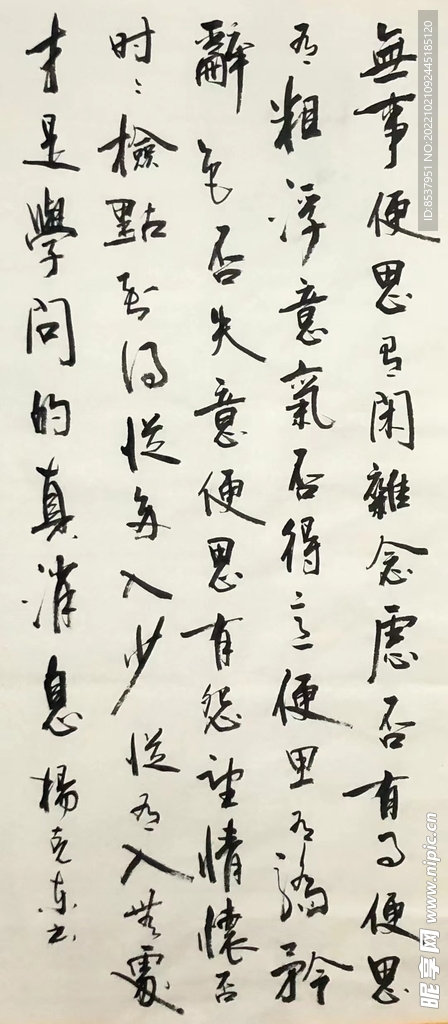 無事便思有閑雜念慮否有事便思
有粗浮意氣否得意便思有驕矜
辭色否失意便思有怨望情懷否
時時檢點到得從多入少從有入無處
才是學問的真消息楊克東書
ID:8537951 NO:20221021092445185120
昵享网 www.nipic.cn